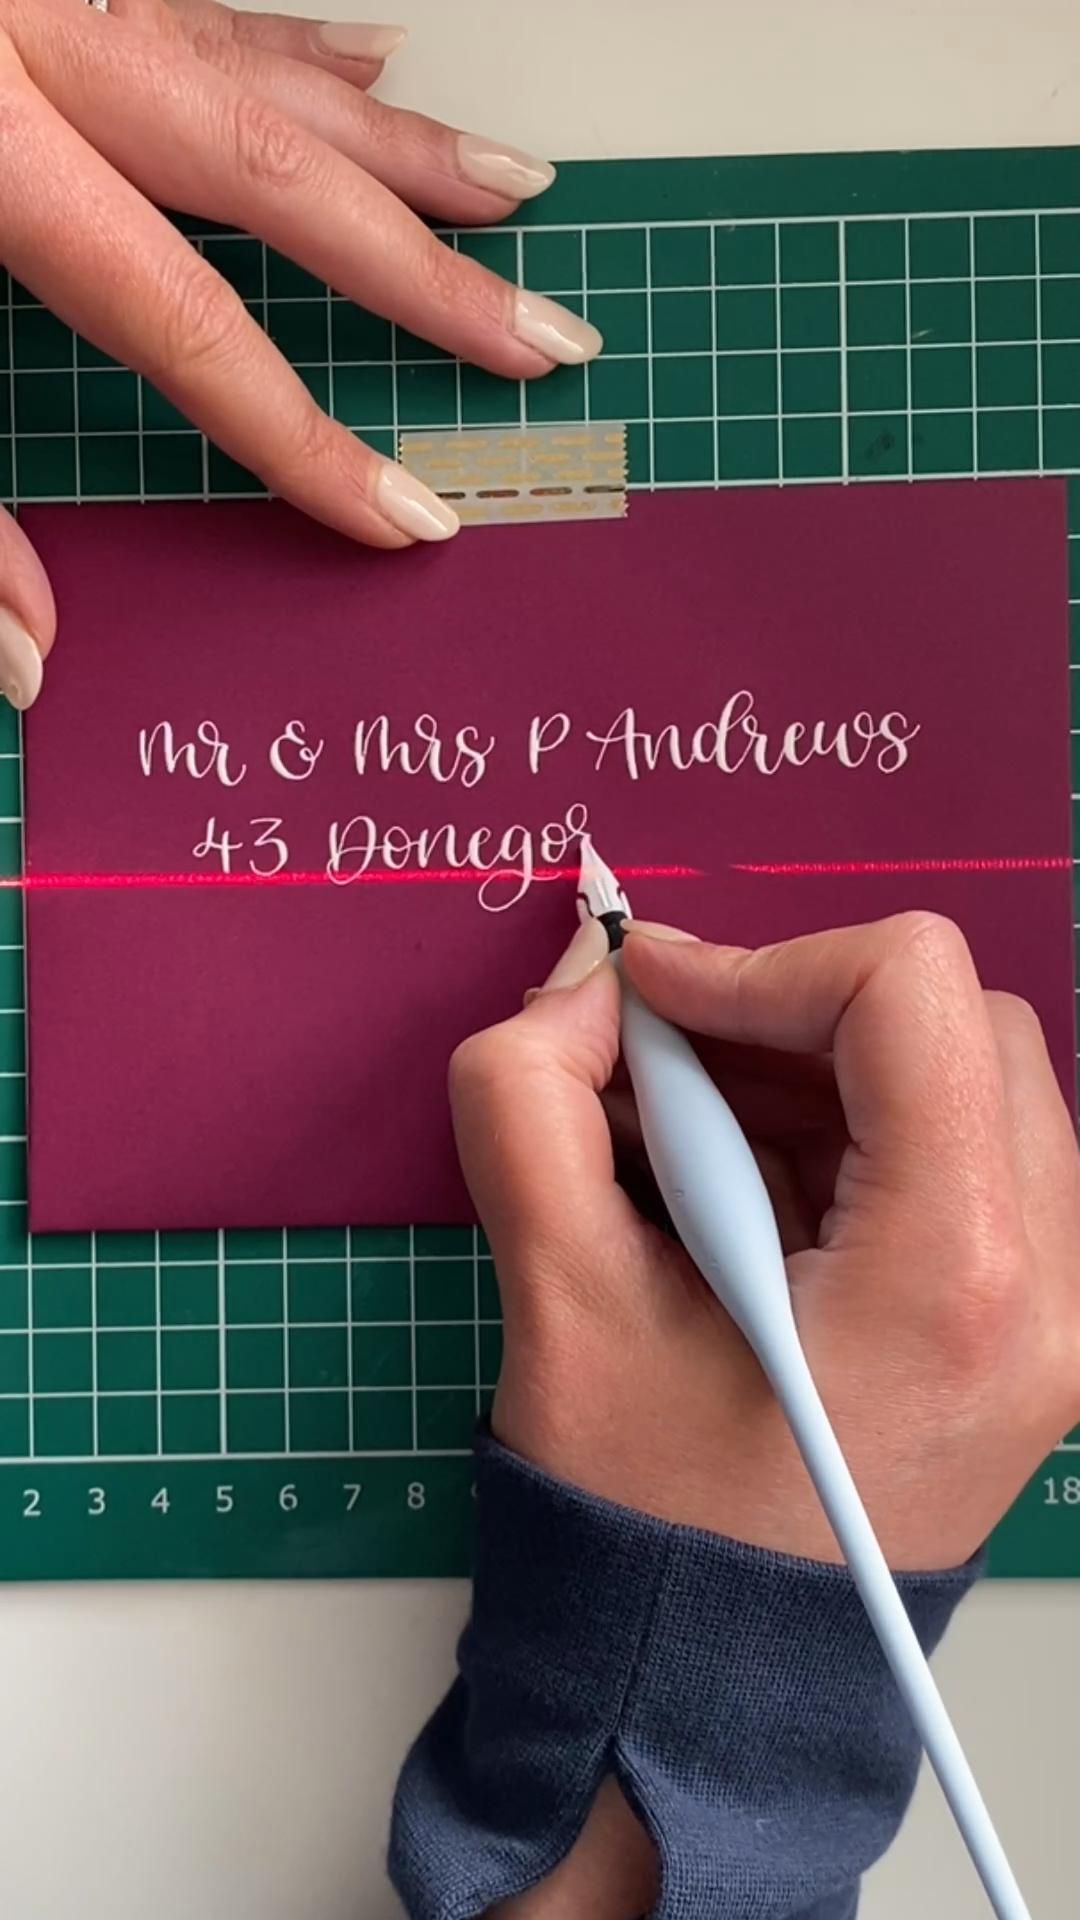 Mr & Mrs P Andrews
43 Donegor
2 3 4 5 6 7 8 18